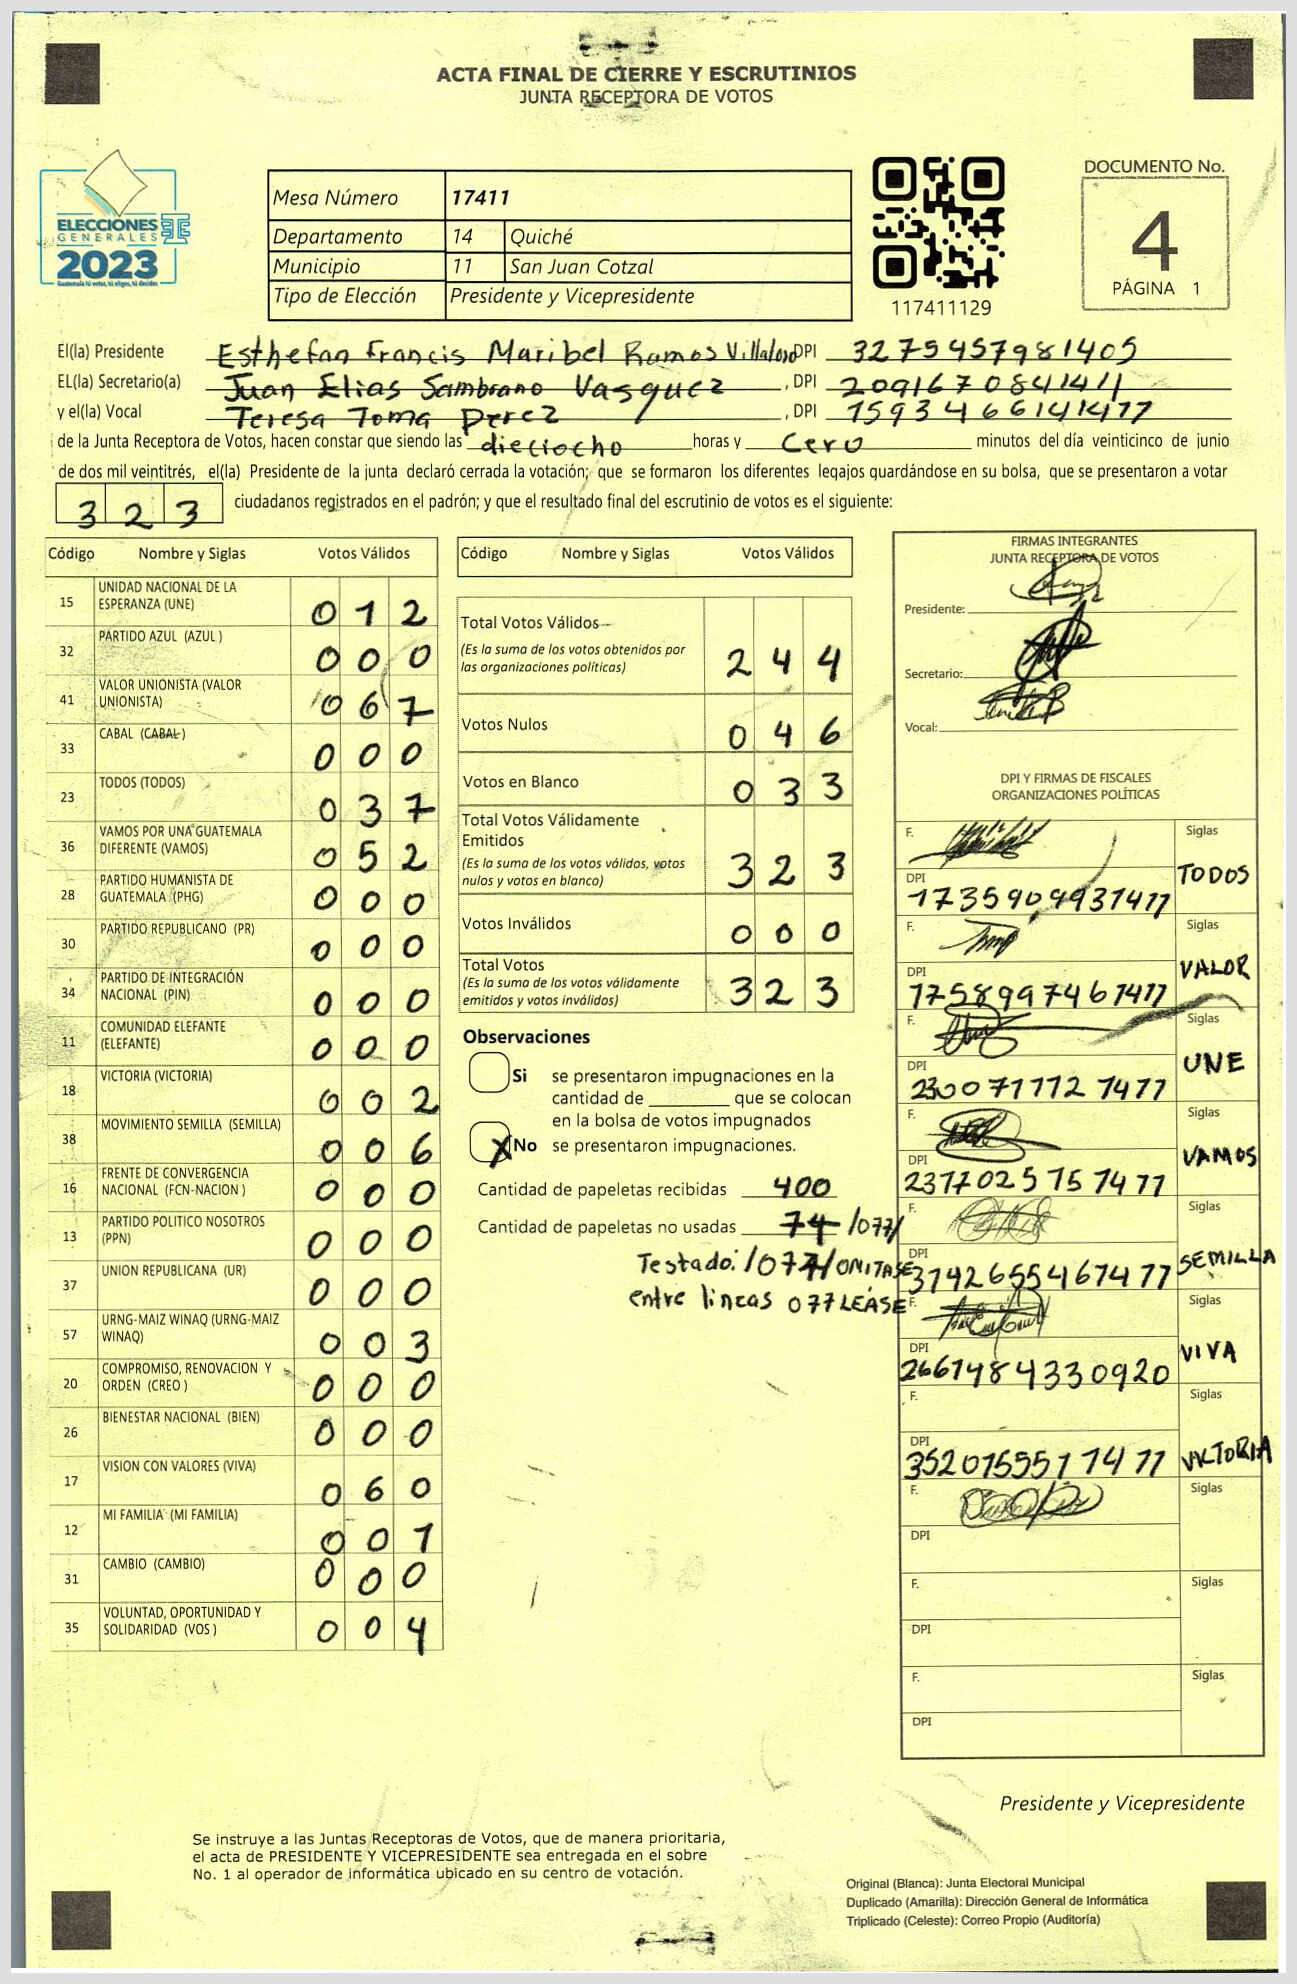 ACTA FINAL DE CIERRE Y ESCRUTINIOS
JUNTA RECEPTORA DE VOTOS
ELECCIONES
GENERALES
2023
Guatemala tú votas, tú eliges, tú decides
Mesa Número 17411
Departamento 14 Quiché
Municipio 11 San Juan Cotzal
Tipo de Elección Presidente y Vicepresidente
117411129
DOCUMENTO No.
4
PÁGINA 1
El(la) Presidente Esthefan Francis Maribel Ramos DPI 3275457981405
EL(la) Secretario(a) Juan Elias Sambrano Vasquez, DPI 2091670841411
y el(la) Vocal Teresa Toma Perez, DPI 1593466141417
de la Junta Receptora de Votos, hacen constar que siendo las dieciocho horas y cero minutos del día veinticinco de junio
de dos mil veintitrés, el(la) Presidente de la junta declaró cerrada la votación; que se formaron los diferentes legajos guardándose en su bolsa, que se presentaron a votar
323 ciudadanos registrados en el padrón; y que el resultado final del escrutinio de votos es el siguiente:
Código Nombre y Siglas Votos Válidos
15 UNIDAD NACIONAL DE LA ESPERANZA (UNE) 012
32 PARTIDO AZUL (AZUL ) 000
41 VALOR UNIONISTA (VALOR UNIONISTA) 067
33 CABAL (CABAL ) 000
23 TODOS (TODOS) 037
36 VAMOS POR UNA GUATEMALA DIFERENTE (VAMOS) 052
28 PARTIDO HUMANISTA DE GUATEMALA (PHG) 000
30 PARTIDO REPUBLICANO (PR) 000
34 PARTIDO DE INTEGRACIÓN NACIONAL (PIN) 000
11 COMUNIDAD ELEFANTE (ELEFANTE) 000
18 VICTORIA (VICTORIA) 002
38 MOVIMIENTO SEMILLA (SEMILLA) 006
16 FRENTE DE CONVERGENCIA NACIONAL (FCN-NACION ) 000
13 PARTIDO POLITICO NOSOTROS (PPN) 000
37 UNION REPUBLICANA (UR) 000
57 URNG-MAIZ WINAQ (URNG-MAIZ WINAQ) 003
20 COMPROMISO, RENOVACION Y ORDEN (CREO ) 000
26 BIENESTAR NACIONAL (BIEN) 000
17 VISION CON VALORES (VIVA) 060
12 MI FAMILIA (MI FAMILIA) 001
31 CAMBIO (CAMBIO) 000
35 VOLUNTAD, OPORTUNIDAD Y SOLIDARIDAD (VOS ) 004
Código Nombre y Siglas Votos Válidos
Total Votos Válidos 244
(Es la suma de los votos obtenidos por
las organizaciones políticas)
Votos Nulos 046
Votos en Blanco 033
Total Votos Válidamente
Emitidos 323
(Es la suma de los votos válidos, votos
nulos y votos en blanco)
Votos Inválidos 000
Total Votos 323
(Es la suma de los votos válidamente
emitidos y votos inválidos)
Observaciones
Si se presentaron impugnaciones en la
cantidad de ________ que se colocan
en la bolsa de votos impugnados
X No se presentaron impugnaciones.
Cantidad de papeletas recibidas 400
Cantidad de papeletas no usadas 74 /077/
Testado: /077/ OMITASE
entre lineas 077 LEASE
FIRMAS INTEGRANTES
JUNTA RECEPTORA DE VOTOS
Presidente:
Secretario:
Vocal:
DPI Y FIRMAS DE FISCALES
ORGANIZACIONES POLÍTICAS
F. Siglas TODOS
DPI 1735909931411
F. Siglas VALOR
DPI 1758997461411
F. Siglas UNE
DPI 2300711121411
F. Siglas VAMOS
DPI 2377025751411
F. Siglas SEMILLA
DPI 3142655461411
F. Siglas VIVA
DPI 2661484330920
F. Siglas VIKTORIA
DPI 3520155511411
F. Siglas
DPI
F. Siglas
DPI
F. Siglas
DPI
Presidente y Vicepresidente
Se instruye a las Juntas Receptoras de Votos, que de manera prioritaria,
el acta de PRESIDENTE Y VICEPRESIDENTE sea entregada en el sobre
No. 1 al operador de informática ubicado en su centro de votación.
Original (Blanca): Junta Electoral Municipal
Duplicado (Amarilla): Dirección General de Informática
Triplicado (Celeste): Correo Propio (Auditoría)